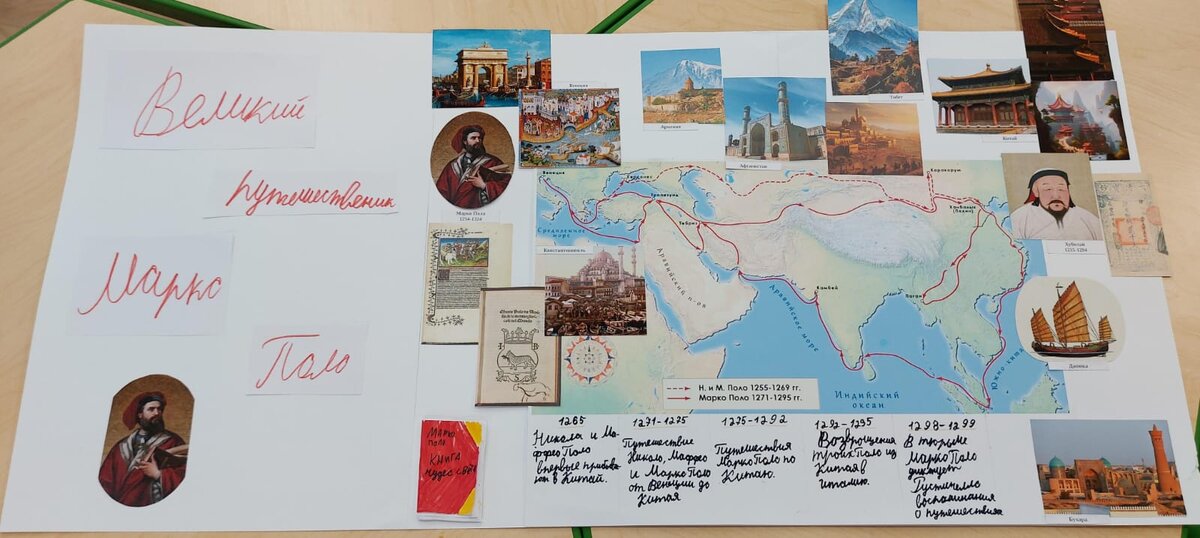 Великий
путешественик
Марко
Поло
Венеция
Марко Поло
1254-1324
Армения
Афганистан
Тибет
Китай
Хубилай
1215-1294
Джонка
Бухара
Константинополь
Венеция
Средиземное
море
Трапезунд
Тебриз
Каракорум
Ханбалык
(Пекин)
Аравийский п-ов
Аравийское море
Камбей
Паган
Индийский
океан
Южно-кит
Н. и М. Поло 1255-1269 гг.
Марко Поло 1271-1295 гг.
Марко
Поло
Книга
чудес света
1265
Никола и Ма-
ффео Поло
впервые прибыва-
ют в Китай.
1271-1275
Путешествие
Николо, Маффео
и Марко Поло
от Венеции до
Китая
1275-1292
Путешествия
Марко Поло по
Китаю.
1292-1295
Возврощения
троих Поло из
Китая в
италию.
1298-1299
В тюрьме
Марко Поло
диктует
Рустичелло
воспоминания
о путешествиях